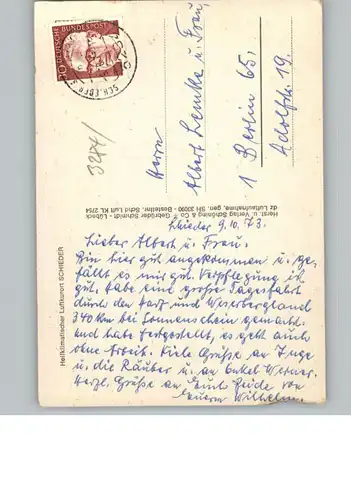 DEUTSCHE BUNDESPOST
30
3284/
Herrn
Albert Lemke u. Frau,
1 Berlin 65,
Adolfstr. 19.
Heilklimatischer Luftkurort SCHIEDER
Horst. u. Verlag Schöning & Co + Gebrüder Schmidt - Lübeck
dz Luftaufnahme, gen. SH Bestellnr. Schd Luft KL 2154
Schieder 9.10.73.
Lieber Albert u. Frau.
Bin hier gut angekommen u. ge-
fällt es mir gut. Verpflegung ist
gut. Habe eine große Tagesfahrt
durch den Harz und Weserbergland
340 km bei Sonnenschein gemacht.
und habe festgestellt, es geht auch
ohne Arbeit. Viele Grüße an Inge
u. die Räuber u. an Onkel Werner.
Herzl. Grüße an Euch Beide von
Eurem Wilhelm.